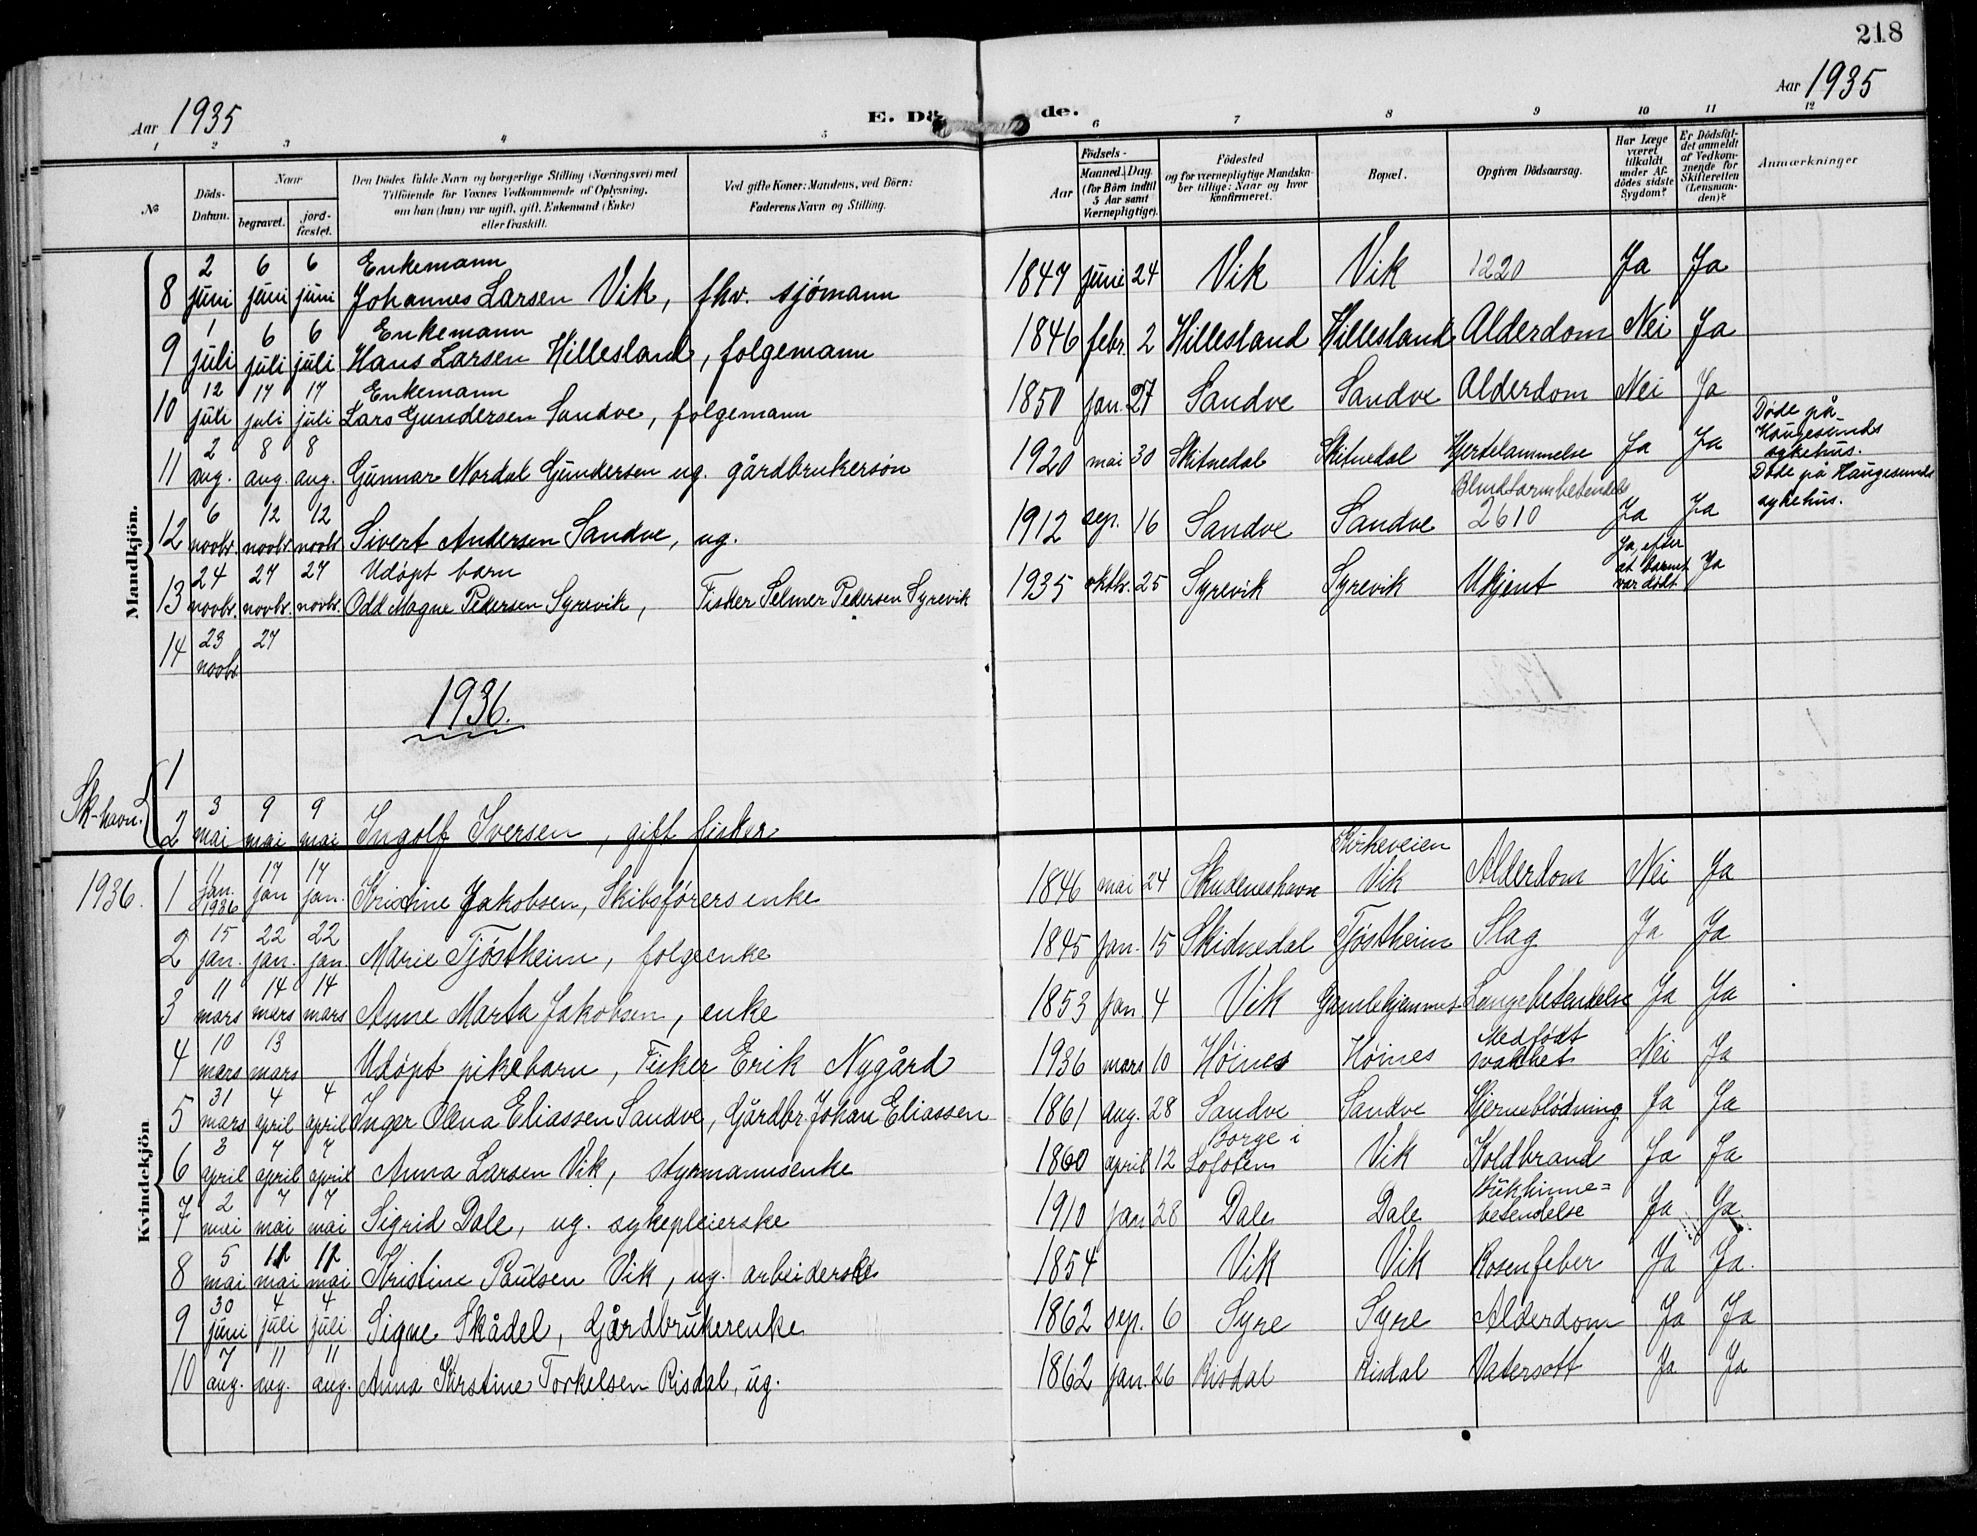 218
Aar 1935
E. Dö de.
Aar 1935
1 2 3 4 5 6 7 8 9 10 11 12
№
Döds-Datum.
Naar
begravet.
jord-fæstet.
Den Dödes fulde Navn og borgerlige Stilling (Næringsvei) med
Tilföiende for Voxnes Vedkommende af Oplysning,
om han (hun) var ugift, gift, Enkemand (Enke)
eller fraskilt.
Ved gifte Koner: Mandens, ved Börn:
Faderens Navn og Stilling.
Födsels-
Aar
Maaned. Dag.
(for Börn indtil
5 Aar samt
Værnepligtige).
Födested
og for værnepligtige Mandska-
ber tillige: Naar og hvor
konfirmeret.
Bopæl.
Opgiven Dödsaarsag.
Har Læge
været
tilkaldt
under Af-
dödes sidste
Sygdom?
Er Dödsfal-
det anmeldt
af Vedkom-
mende for
Skifteretten
(Lensman-
den)?
Anmærkninger
Mandkjön.
8 2 juni 6 juni 6 juni Enkemann Johannes Larsen Vik, fhv. sjömann 1847 juni 24 Vik Vik 1220 Ja Ja
9 1 juli 6 juli 6 juli Enkemann Hans Larsen Hillesland, folgemann 1846 febr. 2 Hillesland Hillesland Alderdom Nei Ja
10 12 juli 17 juli 17 juli Enkemann Lars Gundersen Sandve, folgemann 1850 jan. 27 Sandve Sandve Alderdom Nei Ja
11 2 aug. 8 aug. 8 aug. Gunnar Nordal Gundersen ug. gårdbrukersön 1920 mai 30 Skitnedal Skitnedal Hjertelammelse Ja Ja Døde på Haugesunds sykehus.
12 6 novbr. 12 novbr. 12 novbr. Sivert Andersen Sandve, ug. 1912 sep. 16 Sandve Sandve Blindtarmbetendels 2610 Ja Ja Døde på Haugesunds sykehus.
13 24 novbr. 27 novbr. 27 novbr. Udöpt barn Odd Magne Pedersen Syrevik, Fisker Selmer Pedersen Syrevik 1935 oktbr. 25 Syrevik Syrevik Ukjent Ja, efter at barnet var dödt Ja
14 23 novbr. 27
1936.
Sk-havn.
1
2 3 mai 9 mai 9 mai Ingolf Iversen, gift fisker
Kvindekjön
1936.
1 11 jan. 1936 17 jan 17 jan. Kristine Jakobsen, Skibsförers enke 1846 mai 24 Skudeneshavn Kirkeveien Vik Alderdom Nei Ja
2 15 jan. 22 jan. 22 jan Marie Tjöstheim, folgeenke 1845 jan. 15 Skidnedal Tjöstheim Slag Ja Ja
3 11 mars 14 mars 14 mars Anne Marta Jakobsen, enke 1853 jan. 4 Vik Gamlehjemmet Lungebetendelse Ja Ja
4 10 mars 13 mars Udöpt pikebarn, Fisker Erik Nygård 1936 mars 10 Höines Höines Medfödt svakhet Nei Ja
5 31 mars 4 april 4 april Inger Olena Eliassen Sandve, Gårdbr. Johan Eliassen 1861 aug. 28 Sandve Sandve Hjerneblödning Ja Ja
6 3 april 7 april 7 april Anna Larsen Vik, styrmannsenke 1860 april 12 Borge i Lofoten Vik Koldbrand Ja Ja
7 2 mai 7 mai 7 mai Sigrid Dale, ug. sykepleierske 1910 jan 28 Dale Dale Bukhinne=betendelse Ja Ja
8 5 mai 12 mai 12 mai Kristine Paulsen Vik, ug. arbeiderske 1854 Vik Vik Rosenfeber Ja Ja.
9 30 juni 4 juli 4 juli Signe Skådel, Gårdbrukerenke 1862 sep. 6 Syre Syre Alderdom Ja Ja
10 7 aug. 11 aug. 11 aug. Anna Kirstine Torkelsen Risdal, ug. 1862 jan. 26 Risdal Risdal Vatersott Ja Ja